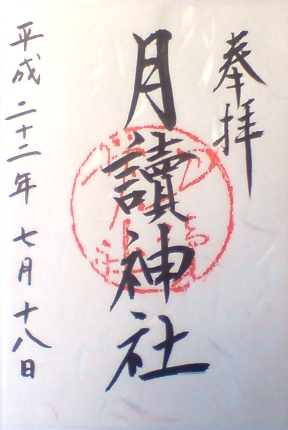 奉拝
月讀神社
平成二十二年七月十八日